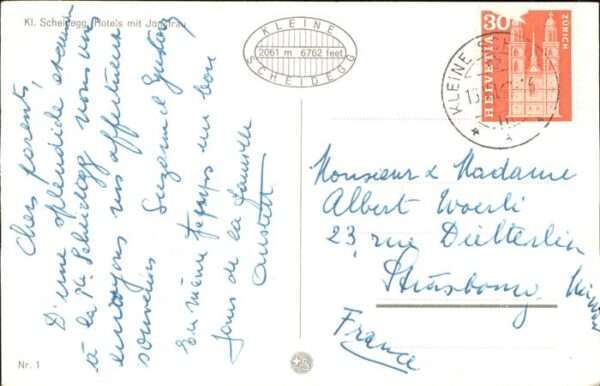 Kl. Scheidegg, Hotels mit Jungfrau
KLEINE SCHEIDEGG
2061 m 6762 feet
30
HELVETIA
ZÜRICH
KLEINE
Chers parents,
D'une splendide
à la Pte Scheidegg nous vous
envoyons nos affectueux
souvenirs Suzanne Gustave
En même temps un bon
jour de la famille
Monsieur & Madame
Albert Woerli
23, rue Dietterlin
Strasbourg
France
Nr. 1